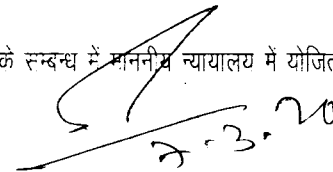 के सम्बन्ध में माननीय न्यायालय में योजित
7.3.20